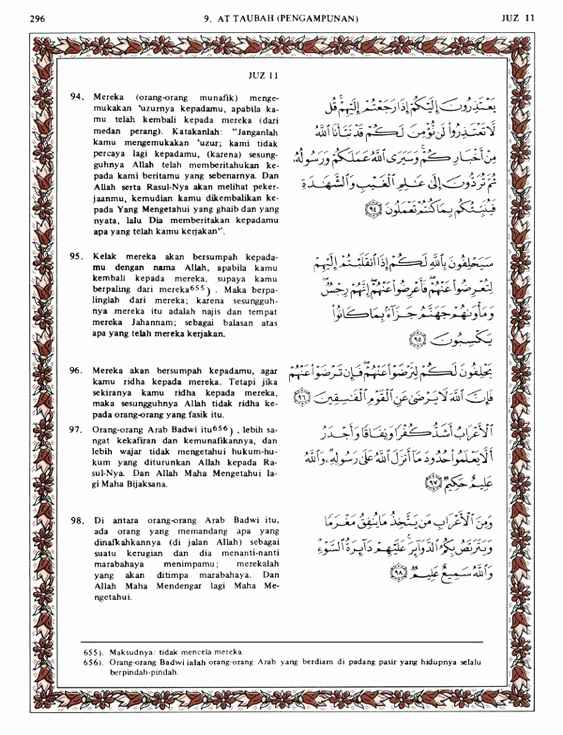 296
9. AT TAUBAH (PENGAMPUNAN)
JUZ 11
JUZ 11
94. Mereka (orang-orang munafik) menge-
mukakan 'uzurnya kepadamu, apabila ka-
mu telah kembali kepada mereka (dari
medan perang). Katakanlah: "Janganlah
kamu mengemukakan 'uzur; kami tidak
percaya lagi kepadamu, (karena) sesung-
guhnya Allah telah memberitahukan ke-
pada kami beritamu yang sebenarnya. Dan
Allah serta Rasul-Nya akan melihat peker-
jaanmu, kemudian kamu dikembalikan ke-
pada Yang Mengetahui yang ghaib dan yang
nyata, lalu Dia memberitakan kepadamu
apa yang telah kamu kerjakan".
يَعْتَذِرُونَ إِلَيْكُمْ إِذَا رَجَعْتُمْ إِلَيْهِمْ قُل
لَّا تَعْتَذِرُوا لَن نُّؤْمِنَ لَكُمْ قَدْ نَبَّأَنَا اللَّهُ
مِنْ أَخْبَارِكُمْ وَسَيَرَى اللَّهُ عَمَلَكُمْ وَرَسُولُهُ
ثُمَّ تُرَدُّونَ إِلَىٰ عَالِمِ الْغَيْبِ وَالشَّهَادَةِ
فَيُنَبِّئُكُم بِمَا كُنتُمْ تَعْمَلُونَ ٩٤
95. Kelak mereka akan bersumpah kepada-
mu dengan nama Allah, apabila kamu
kembali kepada mereka, supaya kamu
berpaling dari mereka655) . Maka berpa-
linglah dari mereka; karena sesungguh-
nya mereka itu adalah najis dan tempat
mereka Jahannam; sebagai balasan atas
apa yang telah mereka kerjakan.
سَيَحْلِفُونَ بِاللَّهِ لَكُمْ إِذَا انقَلَبْتُمْ إِلَيْهِمْ
لِتُعْرِضُوا عَنْهُمْ فَأَعْرِضُوا عَنْهُمْ إِنَّهُمْ رِجْسٌ
وَمَأْوَاهُمْ جَهَنَّمُ جَزَاءً بِمَا كَانُوا
يَكْسِبُونَ ٩٥
96. Mereka akan bersumpah kepadamu, agar
kamu ridha kepada mereka. Tetapi jika
sekiranya kamu ridha kepada mereka,
maka sesungguhnya Allah tidak ridha ke-
pada orang-orang yang fasik itu.
يَحْلِفُونَ لَكُمْ لِتَرْضَوْا عَنْهُمْ فَإِن تَرْضَوْا عَنْهُمْ
فَإِنَّ اللَّهَ لَا يَرْضَىٰ عَنِ الْقَوْمِ الْفَاسِقِينَ ٩٦
97. Orang-orang Arab Badwi itu656) , lebih sa-
ngat kekafiran dan kemunafikannya, dan
lebih wajar tidak mengetahui hukum-hu-
kum yang diturunkan Allah kepada Ra-
sul-Nya. Dan Allah Maha Mengetahui la-
gi Maha Bijaksana.
الْأَعْرَابُ أَشَدُّ كُفْرًا وَنِفَاقًا وَأَجْدَرُ
أَلَّا يَعْلَمُوا حُدُودَ مَا أَنزَلَ اللَّهُ عَلَىٰ رَسُولِهِ وَاللَّهُ
عَلِيمٌ حَكِيمٌ ٩٧
98. Di antara orang-orang Arab Badwi itu,
ada orang yang memandang apa yang
dinafkahkannya (di jalan Allah) sebagai
suatu kerugian dan dia menanti-nanti
marabahaya menimpamu; merekalah
yang akan ditimpa marabahaya. Dan
Allah Maha Mendengar lagi Maha Me-
ngetahui.
وَمِنَ الْأَعْرَابِ مَن يَتَّخِذُ مَا يُنفِقُ مَغْرَمًا
وَيَتَرَبَّصُ بِكُمُ الدَّوَائِرَ عَلَيْهِمْ دَائِرَةُ السَّوْءِ
وَاللَّهُ سَمِيعٌ عَلِيمٌ ٩٨
655). Maksudnya: tidak mencela mereka.
656). Orang-orang Badwi ialah orang-orang Arab yang berdiam di padang pasir yang hidupnya selalu
berpindah-pindah.